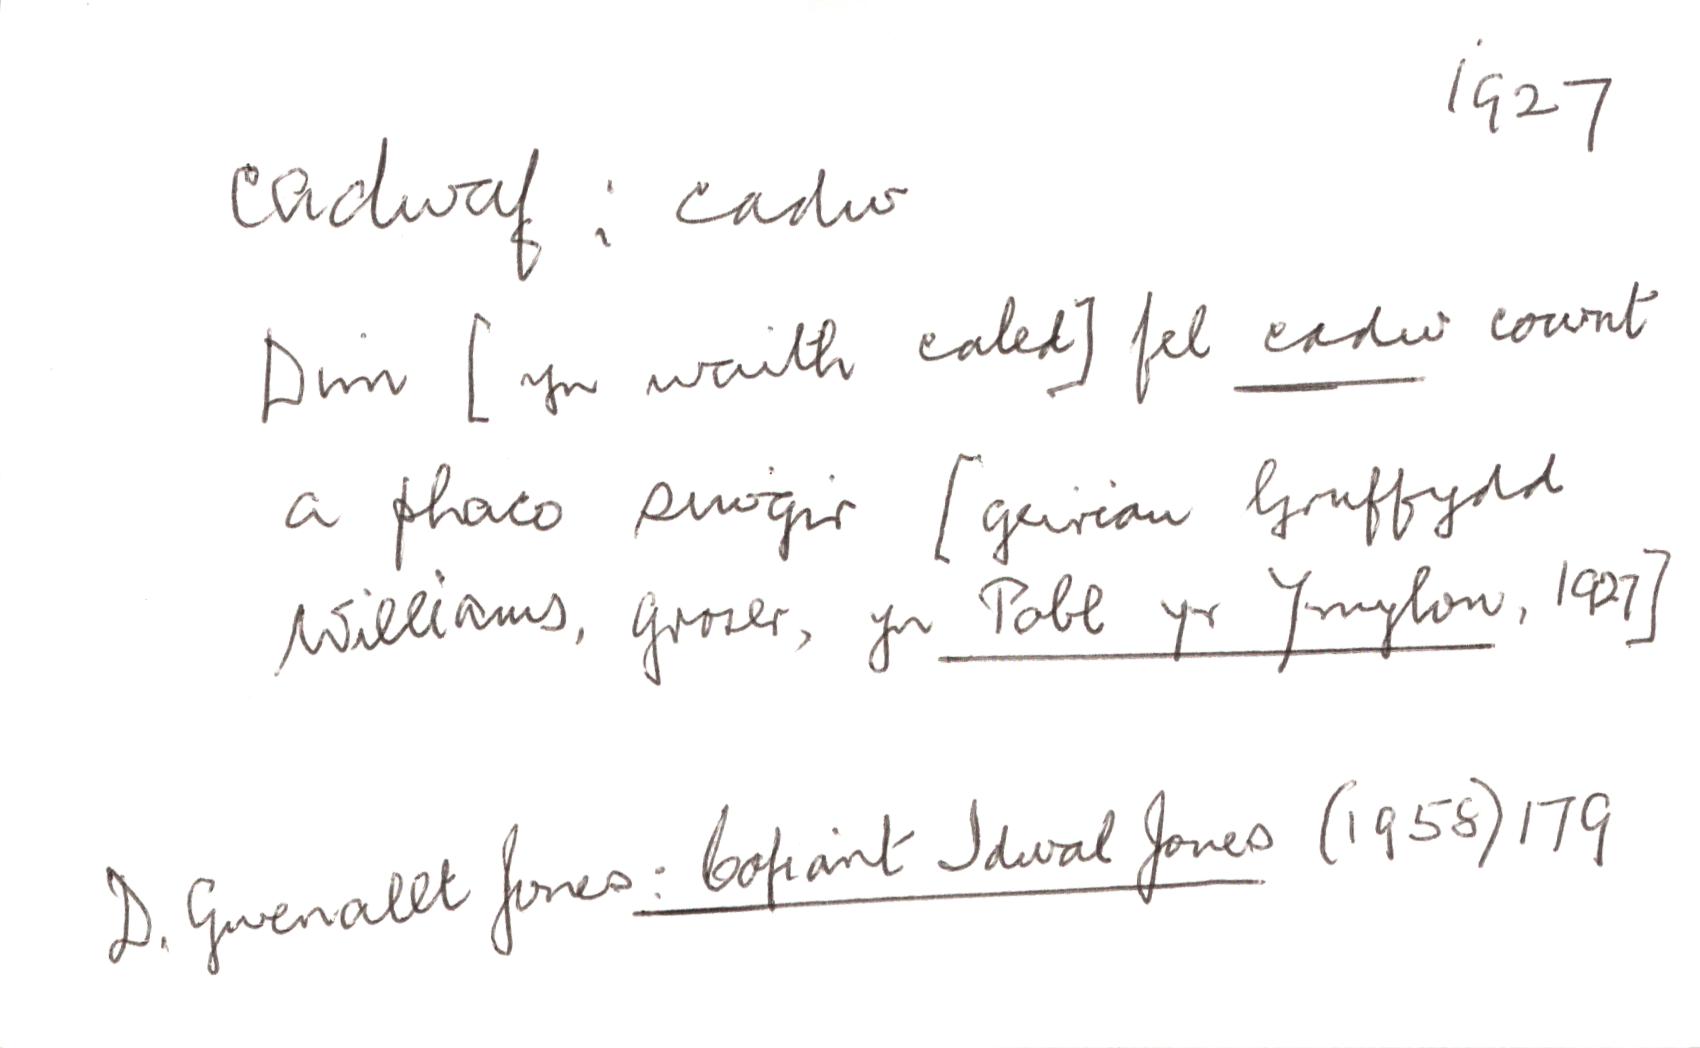 1927
cadwaf : cadw
Dim [yn waith caled] fel cadw cownt
a phaco siwgir [geiriau Gruffydd
Williams, groser, yn Pobl yr Ymylon, 1927]
D. Gwenallt Jones: Cofiant Idwal Jones (1958) 179